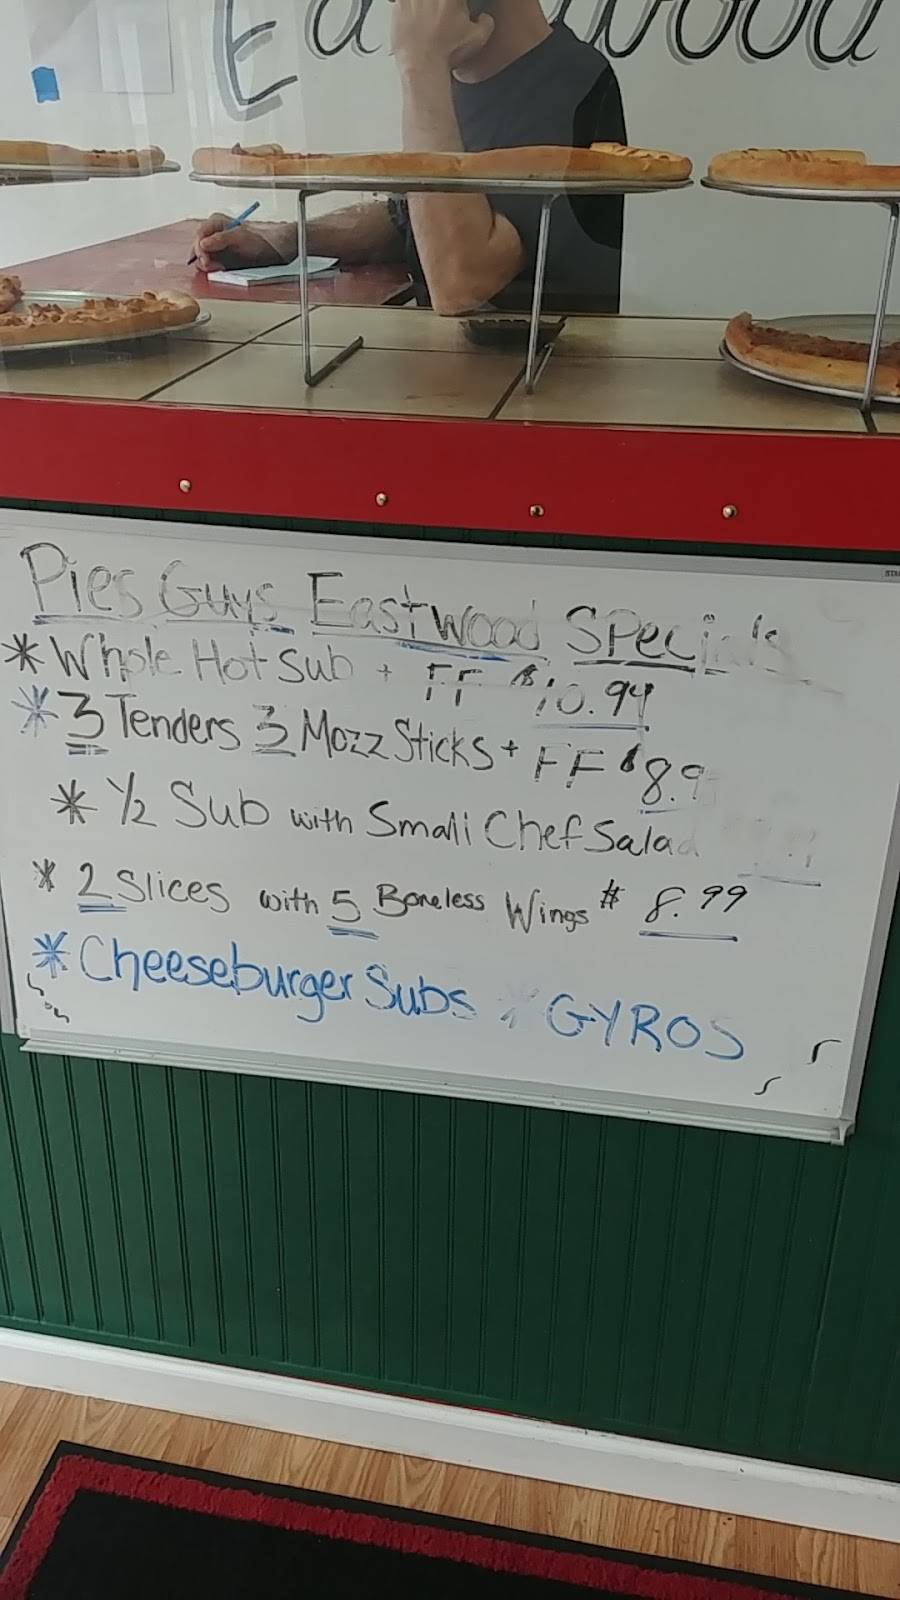 Eastwood
Pies Guys Eastwood Specials
* Whole Hot Sub + FF $10.94
* 3 Tenders 3 Mozz Sticks + FF $8.9
* 1/2 Sub with Small Chef Salad
* 2 Slices with 5 Boneless Wings $8.99
* Cheeseburger Subs * GYROS